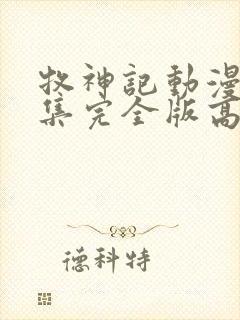 牧神記動漫
集完全版高
德科特